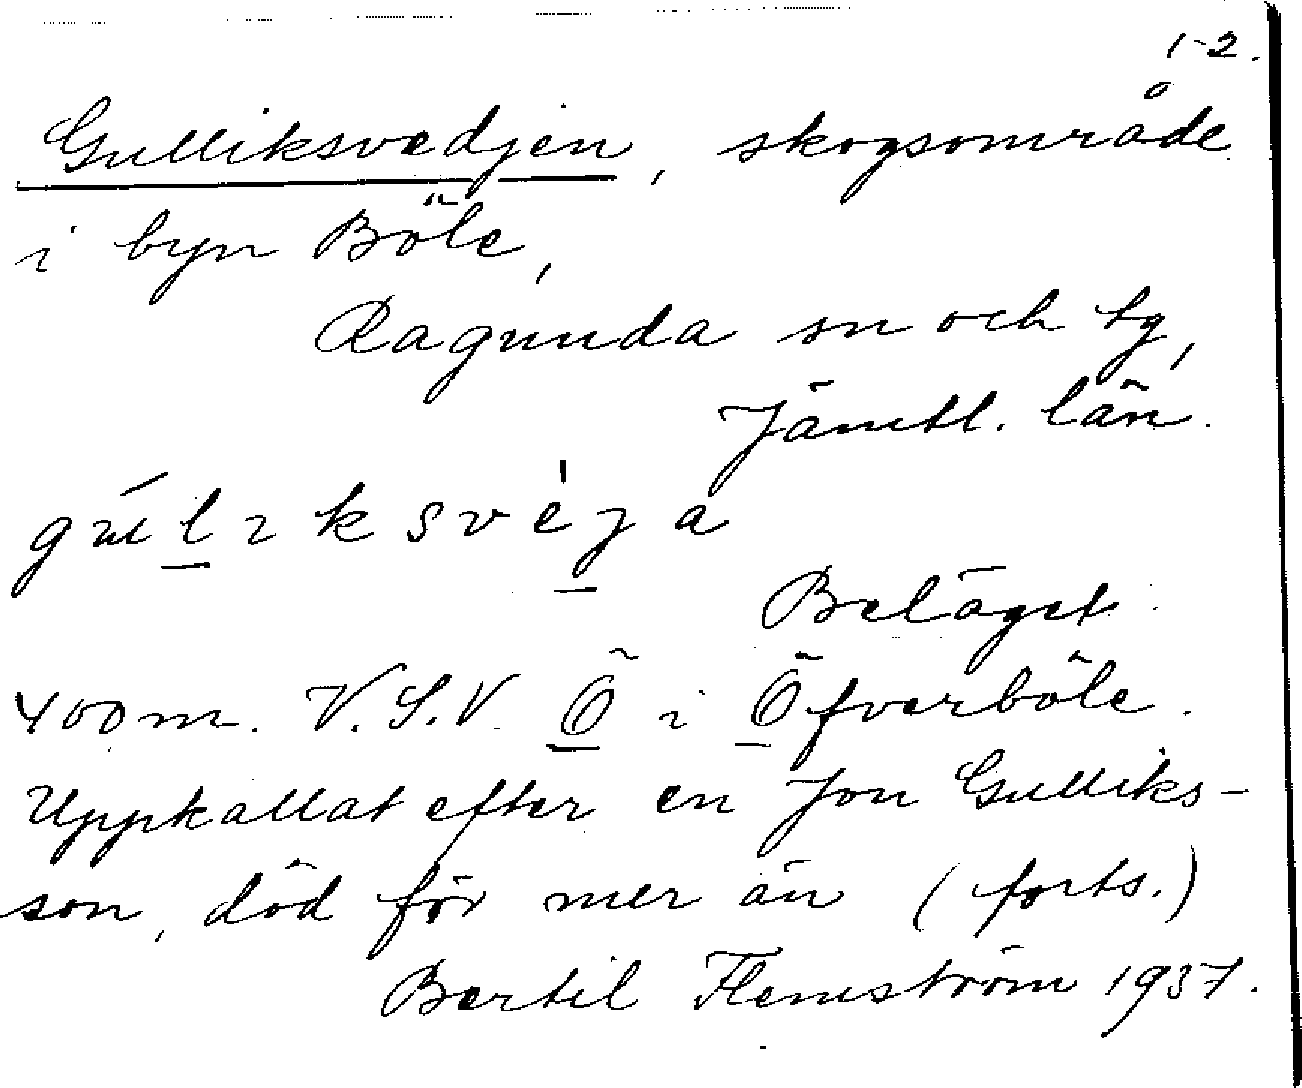 1-2.
Gulliksvedjen, skogsområde
i byn Böle,
Ragunda sn och tg,
Jämtl. län.
gúlıksvèja
Beläget
400 m. V.S.V. Ö i Öfverböle.
Uppkallat efter en Jon Gulliks-
son, död för mer än (forts.)
Bertil Flemström 1937.